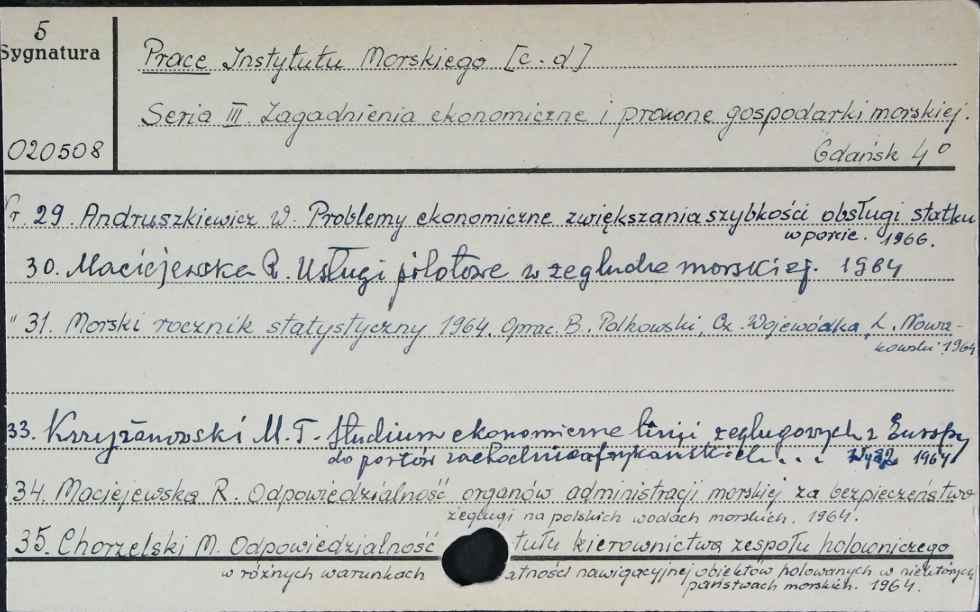 5
Sygnatura
020508
Prace Instytutu Morskiego [c.d]
Seria III. Zagadnienia ekonomiczne i prawne gospodarki morskiej.
Gdańsk 4°
Nr. 29. Andruszkiewicz W. Problemy ekonomiczne zwiększania szybkości obsługi statku
w porcie. 1966.
30. Maciejewska R. Usługi pilotowe w żegludze morskiej. 1964
" 31. Morski rocznik statystyczny 1964. Oprac. B. Polkowski, Cz. Wojewódka, L. Nowa-
kowski 1964
33. Krzyżanowski M. T. Studium ekonomiczne linii żeglugowych z Europy
do portów zachodnioafrykańskich... 1964
34. Maciejewska R. Odpowiedzialność organów administracji morskiej za bezpieczeństwo
żeglugi na polskich wodach morskich. 1964.
35. Chorzelski M. Odpowiedzialność tułu kierownictwa zespołu holowniczego
w różnych warunkach atności nawigacyjnej obiektów holowanych w niektórych
państwach morskich. 1964.